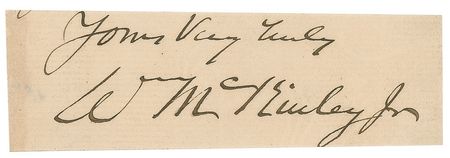 Yours Very Truly
Wm McKinley Jr